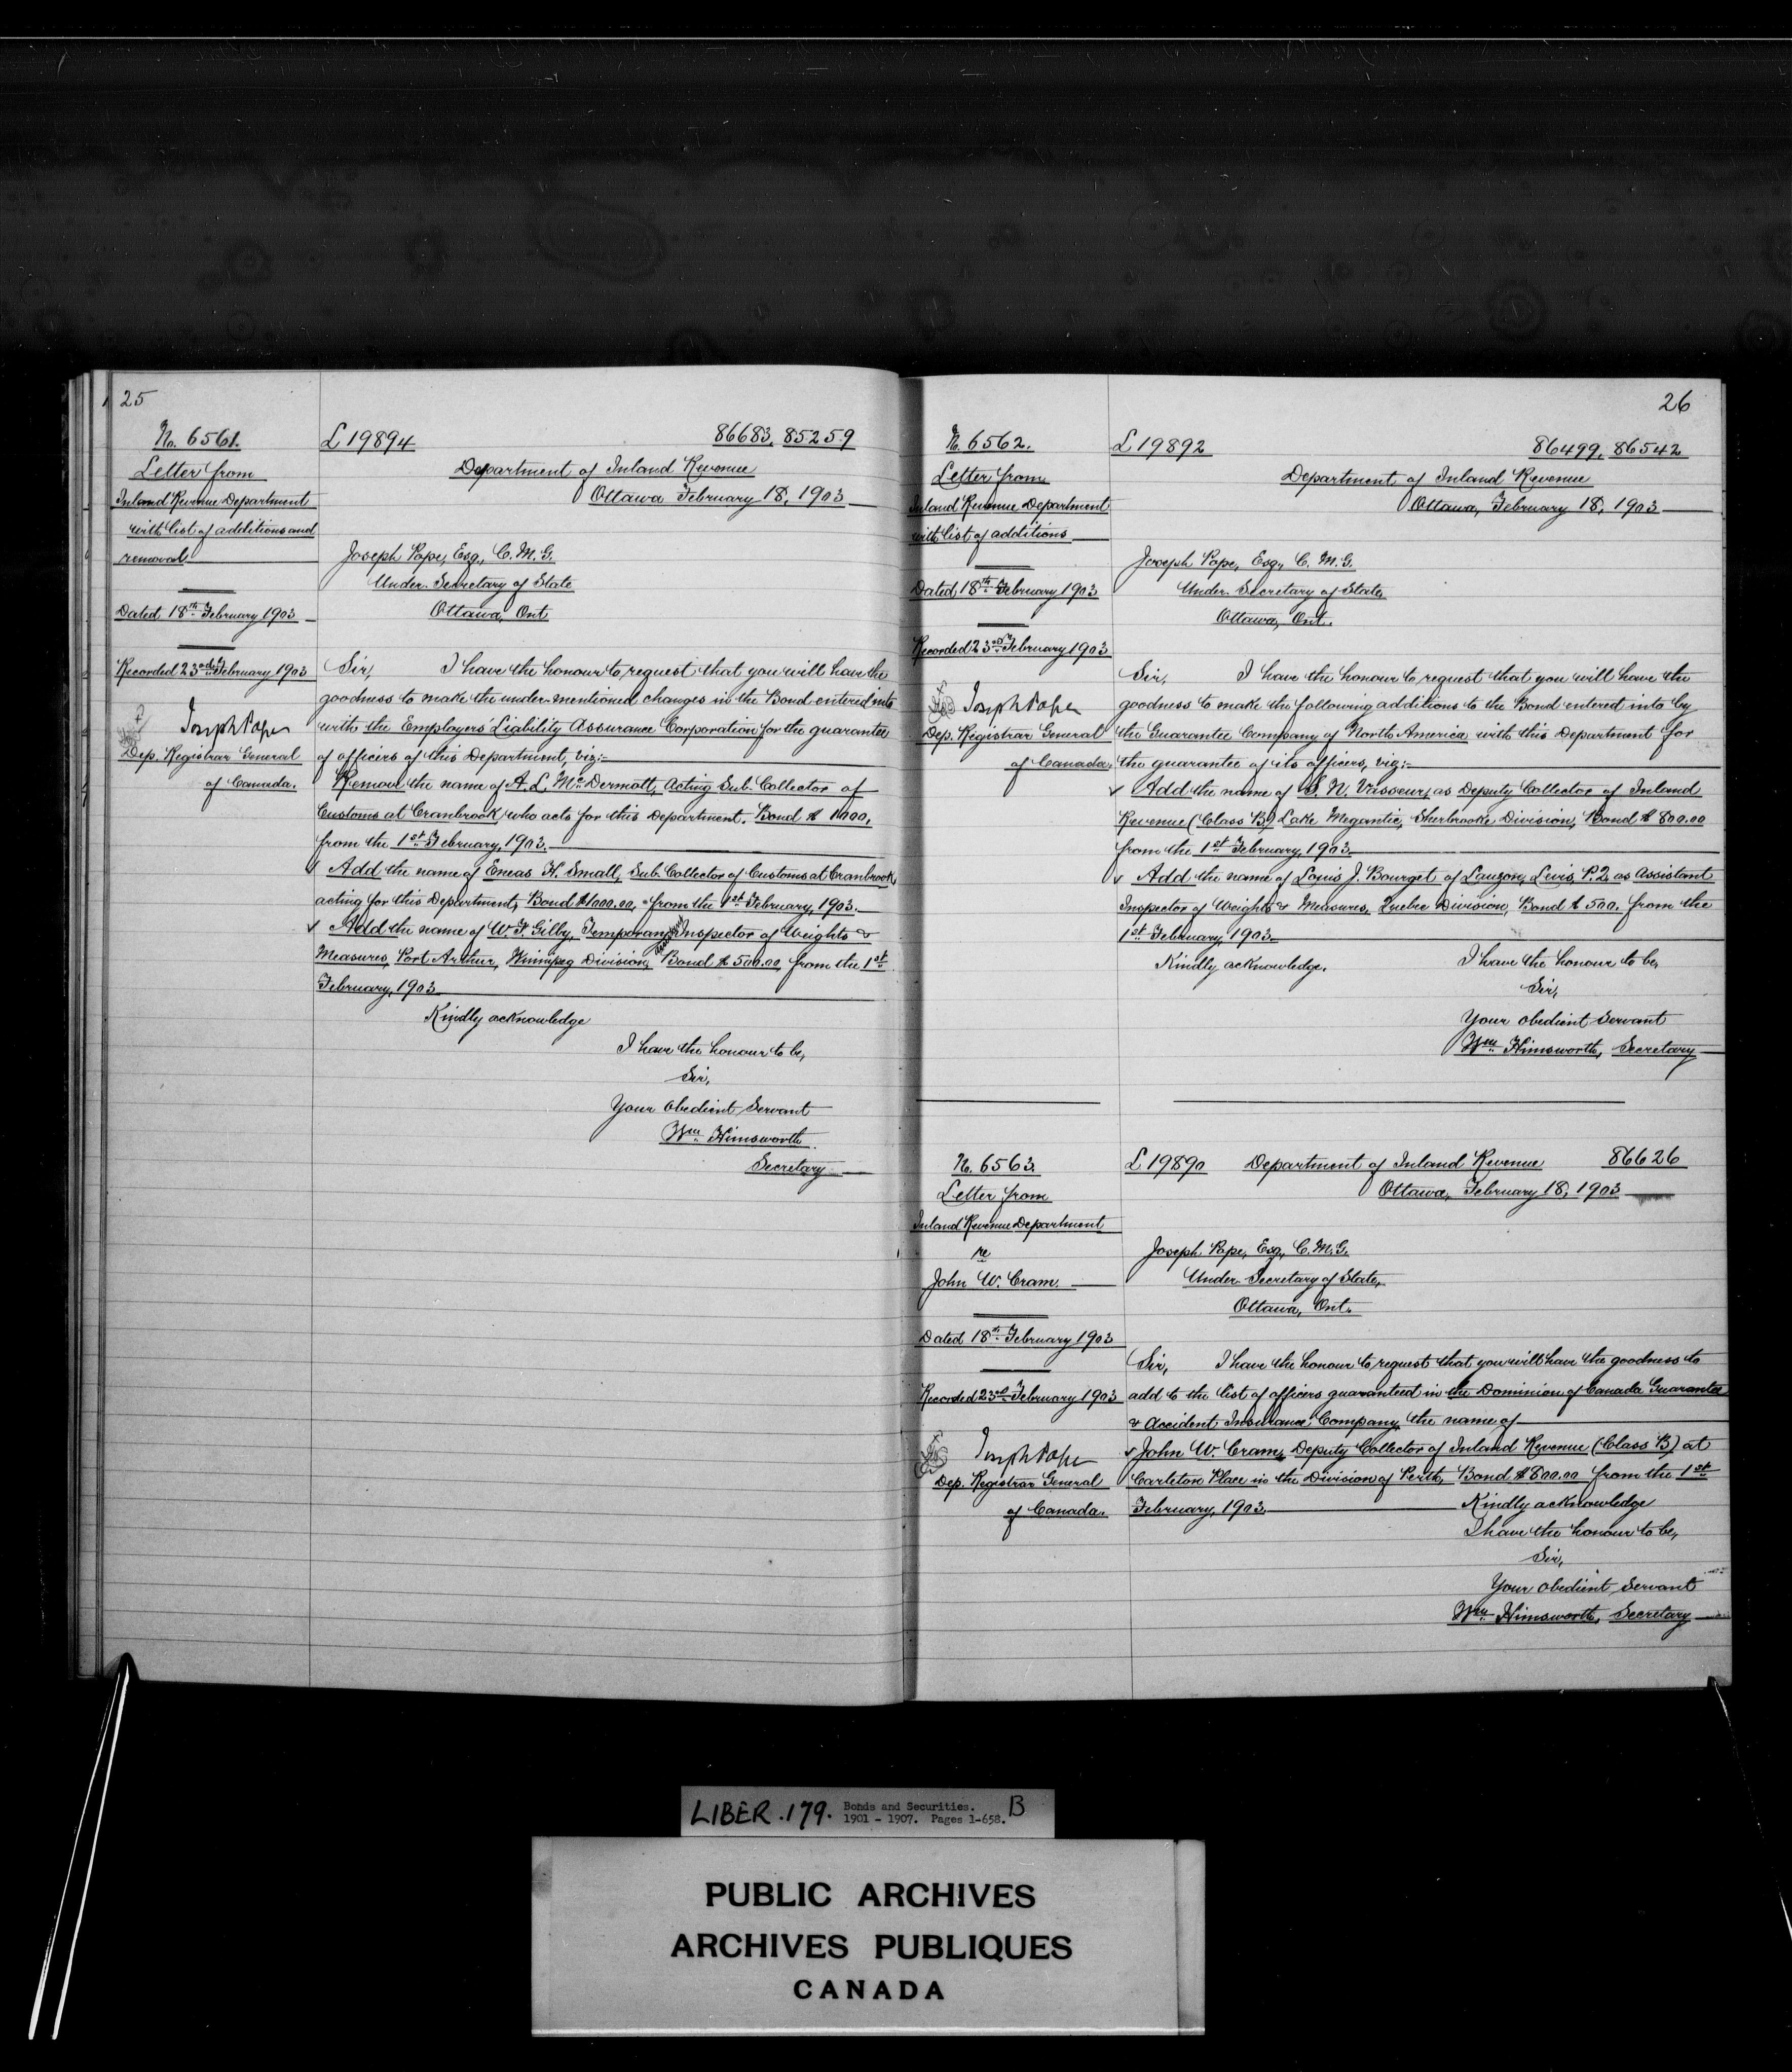 25
No. 6561.
Letter from
Inland Revenue Department
with list of additions and
removal.
Dated 18th February 1903
Recorded 23rd February 1903
Joseph Pope
Dep. Registrar General
of Canada.
L 19894 86683, 85259
Department of Inland Revenue
Ottawa February 18, 1903
Joseph Pope, Esq., C.M.G.
Under-Secretary of State
Ottawa, Ont.
Sir, I have the honour to request that you will have the
goodness to make the under-mentioned changes in the Bond entered into
with the Employers' Liability Assurance Corporation for the guarantee
of officers of this Department, viz:-
Remove the name of A. L. McDermott, Acting Sub-Collector of
Customs at Cranbrook, who acts for this Department. Bond $1000.
from the 1st February, 1903.
✓ Add the name of Eneas H. Small, Sub-Collector of Customs at Cranbrook,
acting for this Department, Bond $1000.00, from the 1st February, 1903.
✓ Add the name of W. F. Gilby, Temporary Inspector of Weights &
Measures, Port Arthur, Winnipeg Division, Bond $500.00, from the 1st
February, 1903
Kindly acknowledge
I have the honour to be,
Sir,
Your obedient Servant
Wm Himsworth
Secretary
26
No. 6562.
Letter from
Inland Revenue Department
with list of additions
Dated 18th February 1903
Recorded 23rd February 1903
Joseph Pope
Dep. Registrar General
of Canada.
L 19892 86499, 86542
Department of Inland Revenue
Ottawa, February 18, 1903
Joseph Pope, Esq., C.M.G.
Under-Secretary of State,
Ottawa, Ont.
Sir, I have the honour to request that you will have the
goodness to make the following additions to the Bond entered into by
the Guarantee Company of North America with this Department for
the guarantee of its officers, viz:-
✓ Add the name of S. N. Vasseur, as Deputy Collector of Inland
Revenue (Class B) Lake Megantic, Sherbrooke Division, Bond $800.00
from the 1st February, 1903.
✓ Add the name of Louis J. Bourget of Lauzon, Levis, P.Q. as Assistant
Inspector of Weights & Measures, Quebec Division, Bond $500. from the
1st February, 1903.
Kindly acknowledge. I have the honour to be,
Sir,
Your obedient Servant
Wm Himsworth, Secretary
No. 6563.
Letter from
Inland Revenue Department
re
John W. Cram.
Dated 18th February 1903
Recorded 23rd February 1903
Joseph Pope
Dep. Registrar General
of Canada.
L 19890 Department of Inland Revenue 86626
Ottawa, February 18, 1903
Joseph Pope, Esq., C.M.G.
Under-Secretary of State,
Ottawa, Ont.
Sir, I have the honour to request that you will have the goodness to
add to the list of officers guaranteed in the Dominion of Canada Guarantee
& Accident Insurance Company, the name of
✓ John W. Cram, Deputy Collector of Inland Revenue (Class B) at
Carleton Place in the Division of Perth, Bond $800.00 from the 1st
February, 1903. Kindly acknowledge
I have the honour to be,
Sir,
Your obedient Servant
Wm Himsworth, Secretary
LIBER.179. Bonds and Securities. B
1901 - 1907. Pages 1-658.
PUBLIC ARCHIVES
ARCHIVES PUBLIQUES
CANADA